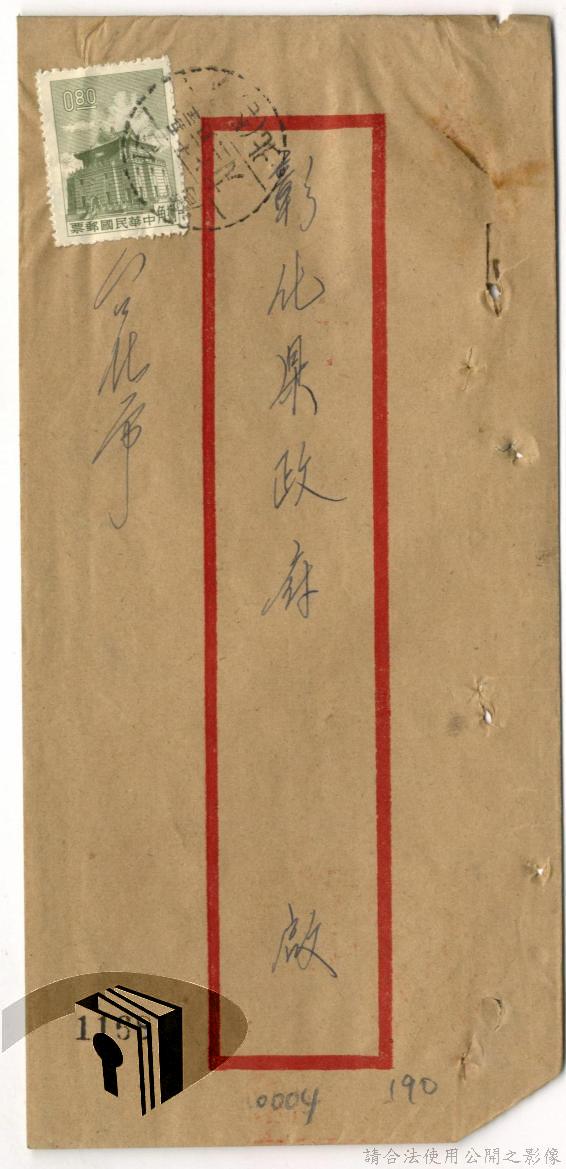 彰化県政府
啟
台北市
0.80
票郵國民華中
190
請合法使用公開之影像